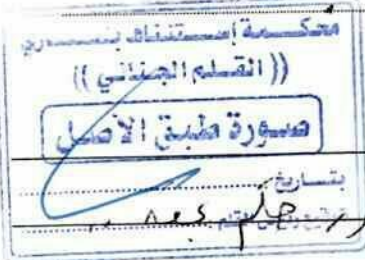 محكمة إستئناف بنغازي
(( القلم الجنائي ))
صورة طبق الأصل
بتاريخ